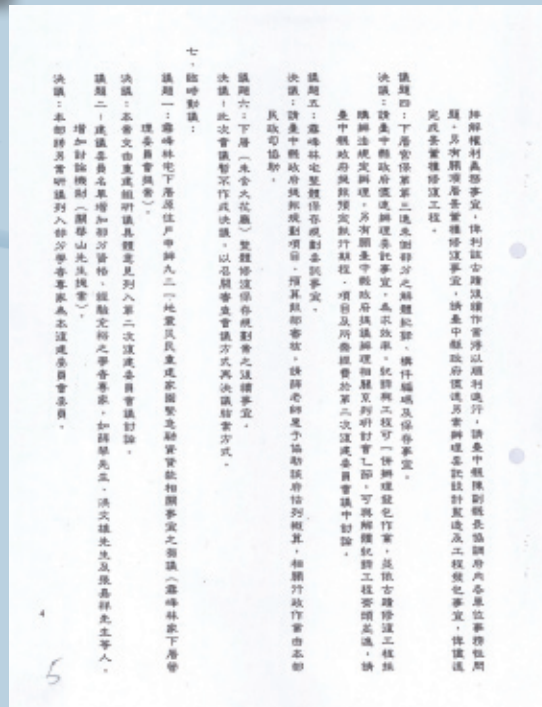 排解權利義務事宜,俾利該古蹟後續作業得以順利進行,請臺中縣陳副縣長協調府內各單位事務性問
題。另有關頂厝景薰樓修復事宜,請臺中縣政府儘速另案辦理委託設計監造及工程發包事宜,俾儘速
完成景薰樓修復工程。
議題四:下厝宮保第第三進東側部分之解體紀錄、構件編碼及保存事宜。
決議:請臺中縣政府儘速辦理委託事宜,為求效率,紀錄與工程可一併辦理發包作業,並依古蹟修復工程採
購辦法規定辦理。另有關臺中縣政府擬議辦理相關系列研討會乙節,可與解體紀錄工程齊頭並進,請
臺中縣政府提報預定執行期程、項目及所需經費於第二次復建委員會議中討論。
議題五:霧峰林宅整體保存規劃委託事宜。
決議:請臺中縣政府提報規劃項目、預算報部審核,請薛老師惠予協助該府估列概算,相關行政作業由本部
民政司協助。
議題六:下厝(未含大花廳)整體修復保存規劃案之後續事宜。
決議:此次會議暫不作成決議,以召開審查會議方式再決議結案方式。
七、臨時動議:
議題一:霧峰林宅下厝原住戶申辦九二一地震災民重建家園緊急融資貸款相關事宜之籌議(霧峰林家下厝管
理委員會提案)。
決議:本案交由重建組研議具體意見列入第二次復建委員會議討論。
議題二:建議委員名單增加部分資格、經驗充裕之學者專家,如薛琴先生、洪文雄先生及張嘉祥先生等人,
增加討論機制(關華山先生提案)。
決議:本部將另案研議列入部分學者專家為本復建委員會委員。
4
5